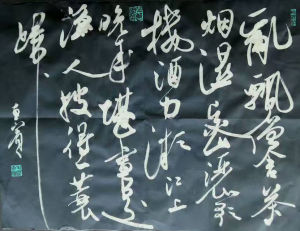 乱飘僧舍茶
烟湿密洒歌
楼酒力微江上
晚来堪画处
渔人披得一蓑
归